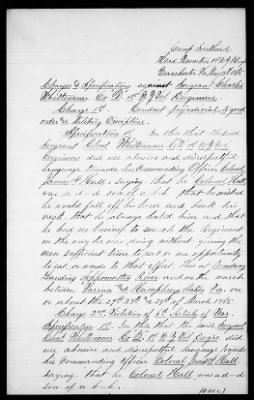 Camp Southard
Head Quarters 1st N.Y. V. Eng's
May 1st 1865
Charges & Specifications against Sergeant Charles
Whittemore Co D. 1st N.Y. Vol. Engineers
Charge 1st. Conduct prejudicial to good
order & Military Discipline.
Specification 1st In this that he said
Sergeant Chas. Whittemore Co D. 1st N.Y. Vol
Engineers did use abusive and disrespectful
language towards his Commanding Officer Colonel
James F. Hall. Saying, that he Colonel Hall
was a d-d son of a b-h, that he wished
he would fall off his horse and break his
neck, that he always hated him and that
he had no business to march the Regiment
in the way he was doing without giving the
men sufficient time to rest or an opportunity
to eat, or words to that effect. This at
Landing Appomattox River and on the march
between Varina and Humphreys Station Va.
on or about the 27th 28th & 29th of March 1865
Charge 2nd. Violation of 6th Article of War.
Specification 1st. In this that the said Sergeant
Chas. Whittemore Co D. 1st N.Y. Vol. Engrs did
use abusive and disrespectful language towards
his Commanding Officer Colonel James F. Hall
Saying, that he Colonel Hall was a d-d
son of a b-h.
(over)